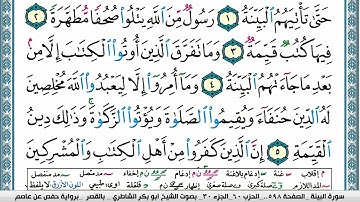 حَتَّىٰ تَأۡتِيَهُمُ ٱلۡبَيِّنَةُ ١ رَسُولٞ مِّنَ ٱللَّهِ يَتۡلُواْ صُحُفٗا مُّطَهَّرَةٗ ٢
فِيهَا كُتُبٞ قَيِّمَةٞ ٣ وَمَا تَفَرَّقَ ٱلَّذِينَ أُوتُواْ ٱلۡكِتَٰبَ إِلَّا مِنۢ
بَعۡدِ مَا جَآءَتۡهُمُ ٱلۡبَيِّنَةُ ٤ وَمَآ أُمِرُوٓاْ إِلَّا لِيَعۡبُدُواْ ٱللَّهَ مُخۡلِصِينَ
لَهُ ٱلدِّينَ حُنَفَآءَ وَيُقِيمُواْ ٱلصَّلَوٰةَ وَيُؤۡتُواْ ٱلزَّكَوٰةَۚ وَذَٰلِكَ دِينُ
ٱلۡقَيِّمَةِ ٥ إِنَّ ٱلَّذِينَ كَفَرُواْ مِنۡ أَهۡلِ ٱلۡكِتَٰبِ وَٱلۡمُشۡرِكِينَ
سورة البينة . ص٥٩٨ . الحزب ٦٠ . الجزء ٣٠ . بصوت الشيخ ابو بكر الشاطري . بالقصر . برواية حفص عن عاصم